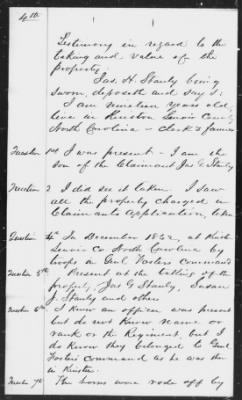 4th
Testimony in regard to the
taking and value of the
property.
Jas. H. Stanly being
sworn, deposeth and say's:
I am nineteen years old,
live in Kinston Lenoir County
North Carolina -
Question 1st I was present - I am the
son of the Claimant Jas G Stanly
Question 2 I did see it taken. I saw
all the property charged in
Claimants application, taken
Question 4 In December 1862, at
Lenoir Co North Carolina by
troops in Genl Fosters Command
Question 5th Present at the taking of the
property, Jas G Stanly, Susan
J. Stanly and others
Question 6th I know an officer was present
but do not know name or
rank or the Regiment, but I
do know they belonged to Genl
Fosters command as he was then
in Kinston.
Question 7th The horses were rode off by